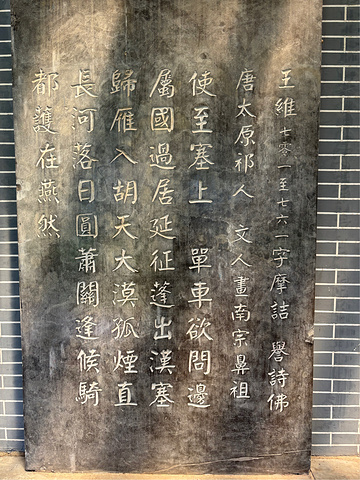 王維 七零一至七六一字摩詰 譽詩佛
唐太原祁人 文人畫南宗鼻祖
使至塞上 單車欲問邊
屬國過居延征蓬出漢塞
歸雁入胡天大漠孤煙直
長河落日圓蕭關逢候騎
都護在燕然